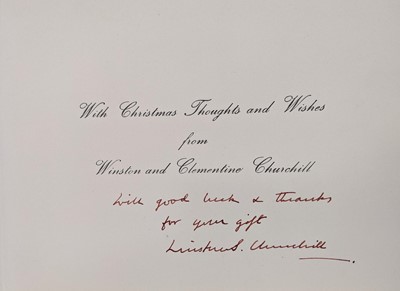 With Christmas Thoughts and Wishes
from
Winston and Clementine Churchill
With good luck & thanks
for your gift
Winston S. Churchill